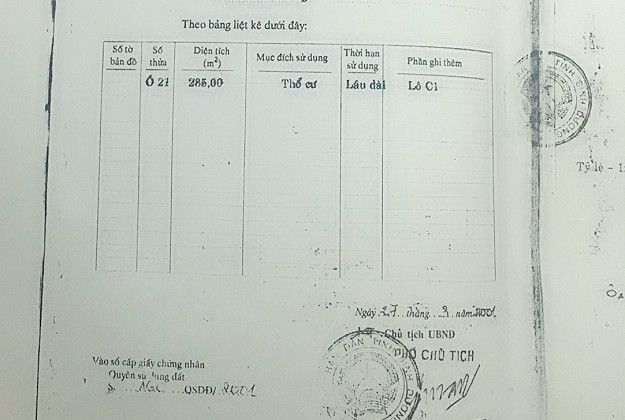 Theo bảng liệt kê dưới đây:
Số tờ bản đồ
Số thửa
Diện tích (m²)
Mục đích sử dụng
Thời hạn sử dụng
Phần ghi thêm
Ô 21 285,00 Thổ cư Lâu dài Lô C1
TỈNH BÌNH DƯƠNG
Tỷ lệ - 1
Ngày 27 tháng 3 năm 2001
Chủ tịch UBND
PHÓ CHỦ TỊCH
Vào sổ cấp giấy chứng nhận
Quyền sử dụng đất
QSDĐ/ 2001